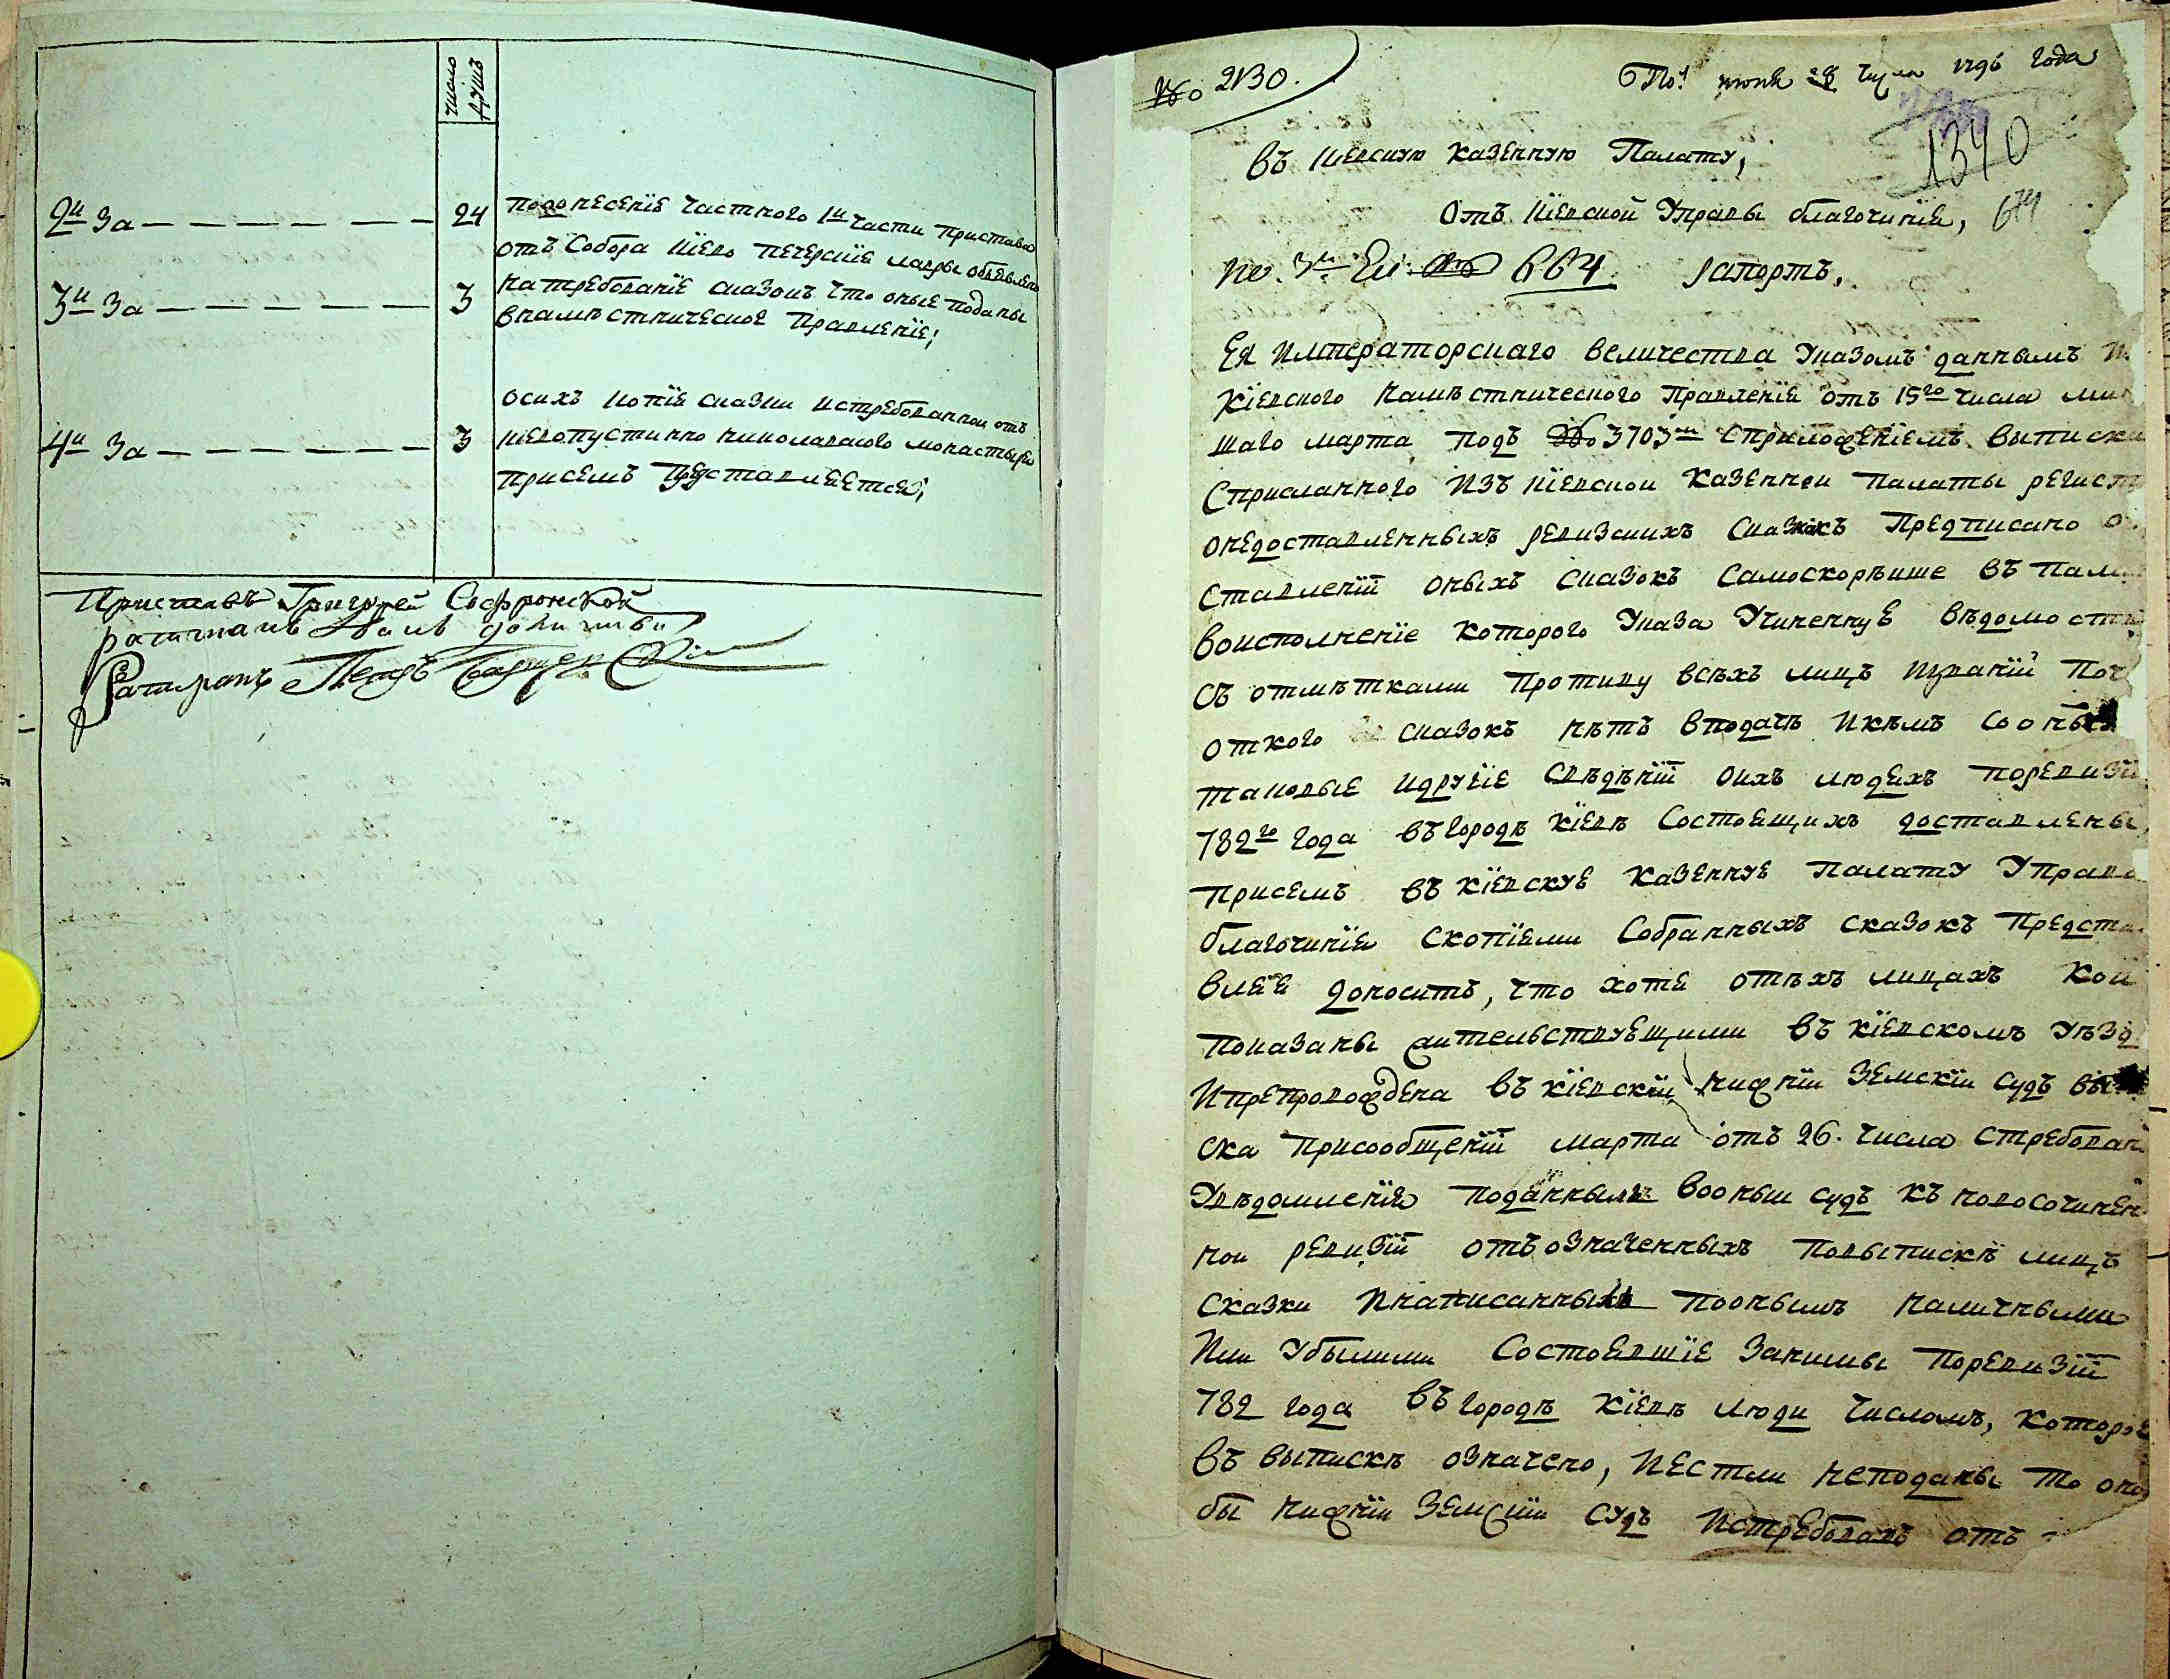 число душъ
2и За — — — — — — 24
подонесеніе частного 1и части пристава
отъ Собора Кіево печерскіе лавры объявлено
3и За — — — — — — 3
натребованіе сказокъ что оные поданы
внаместническое Правленіе;
осихъ копіе сказки истребованнои отъ
4и За — — — — — — 3
киевопустинно николаевского монастыре
присемъ представляется;
Приставъ Григорей Софроновской
ратманъ
Ратманъ Петръ
№ 2130.
июня 28 числа 1796 года
1340
въ киевскую казенную Палату,
Отъ Кіевской Управы благочинія, 674
по. 3й Ек: 664. рапортъ.
Ея императорскаго величества Указомъ даннымъ
Кіевского намѣстнического Правленіе отъ 15го числа
шаго марта подъ № 3703м Сприложеніемъ выписки
Сприсланного изъ кіевской казенной палаты
онедоставленныхъ ревизскихъ сказокъ Предписано
ставленіи оныхъ сказокъ Самоскорѣише въ
воисполненіе которого Указа Учиненнуе вѣдомость
съ отмѣтками противу всѣхъ лицъ
откого сказокъ нѣтъ вподачѣ
таковые идругіе свѣдѣніи оихъ людехъ поревизіи
782го года въ городѣ кіевѣ Состоящихъ доставлены,
присемъ въ кіевскуе казеннуе палату Управа
благочиніе скопіеми Собранныхъ сказокъ Предста
влѣе доноситъ, что хотя отѣхъ лицахъ кои
показаны жительствуещими въ кіевскомъ уѣзд
ипрепровождена въ кіевскій нижній земскій судъ
ска присообщеніи марта отъ 26. числа стребован
увѣдомленіе поданныль вооныи судъ къ новосочинен
нои ревизіи отъозначенныхъ повыпискѣ лицъ
сказки инаписанныль поонымъ наличными
или убылими Состоявшіе заними поревизіи
782 года въ городѣ кіевѣ люди числомъ, которое
въ выпискѣ означено, иестли неподаны то
бы нижніи Земскіи судъ истребовалъ отъ -